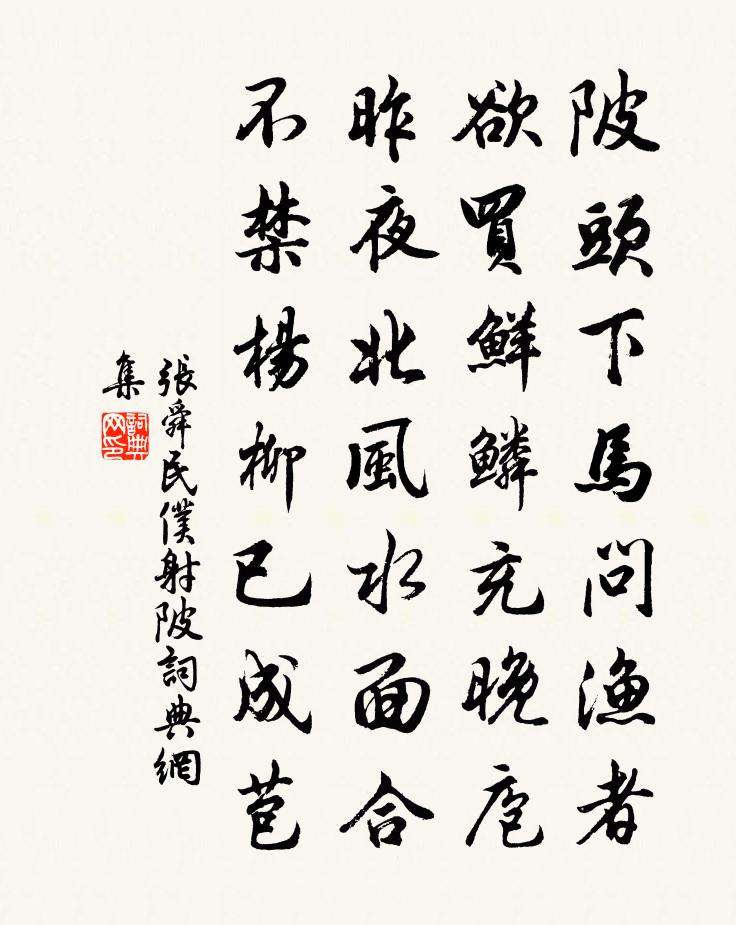 陂頭下馬問漁者
欲買鮮鱗充晚庖
昨夜北風水面合
不禁楊柳已成苞
張舜民僕射陂詞典網
集
詞典
网印